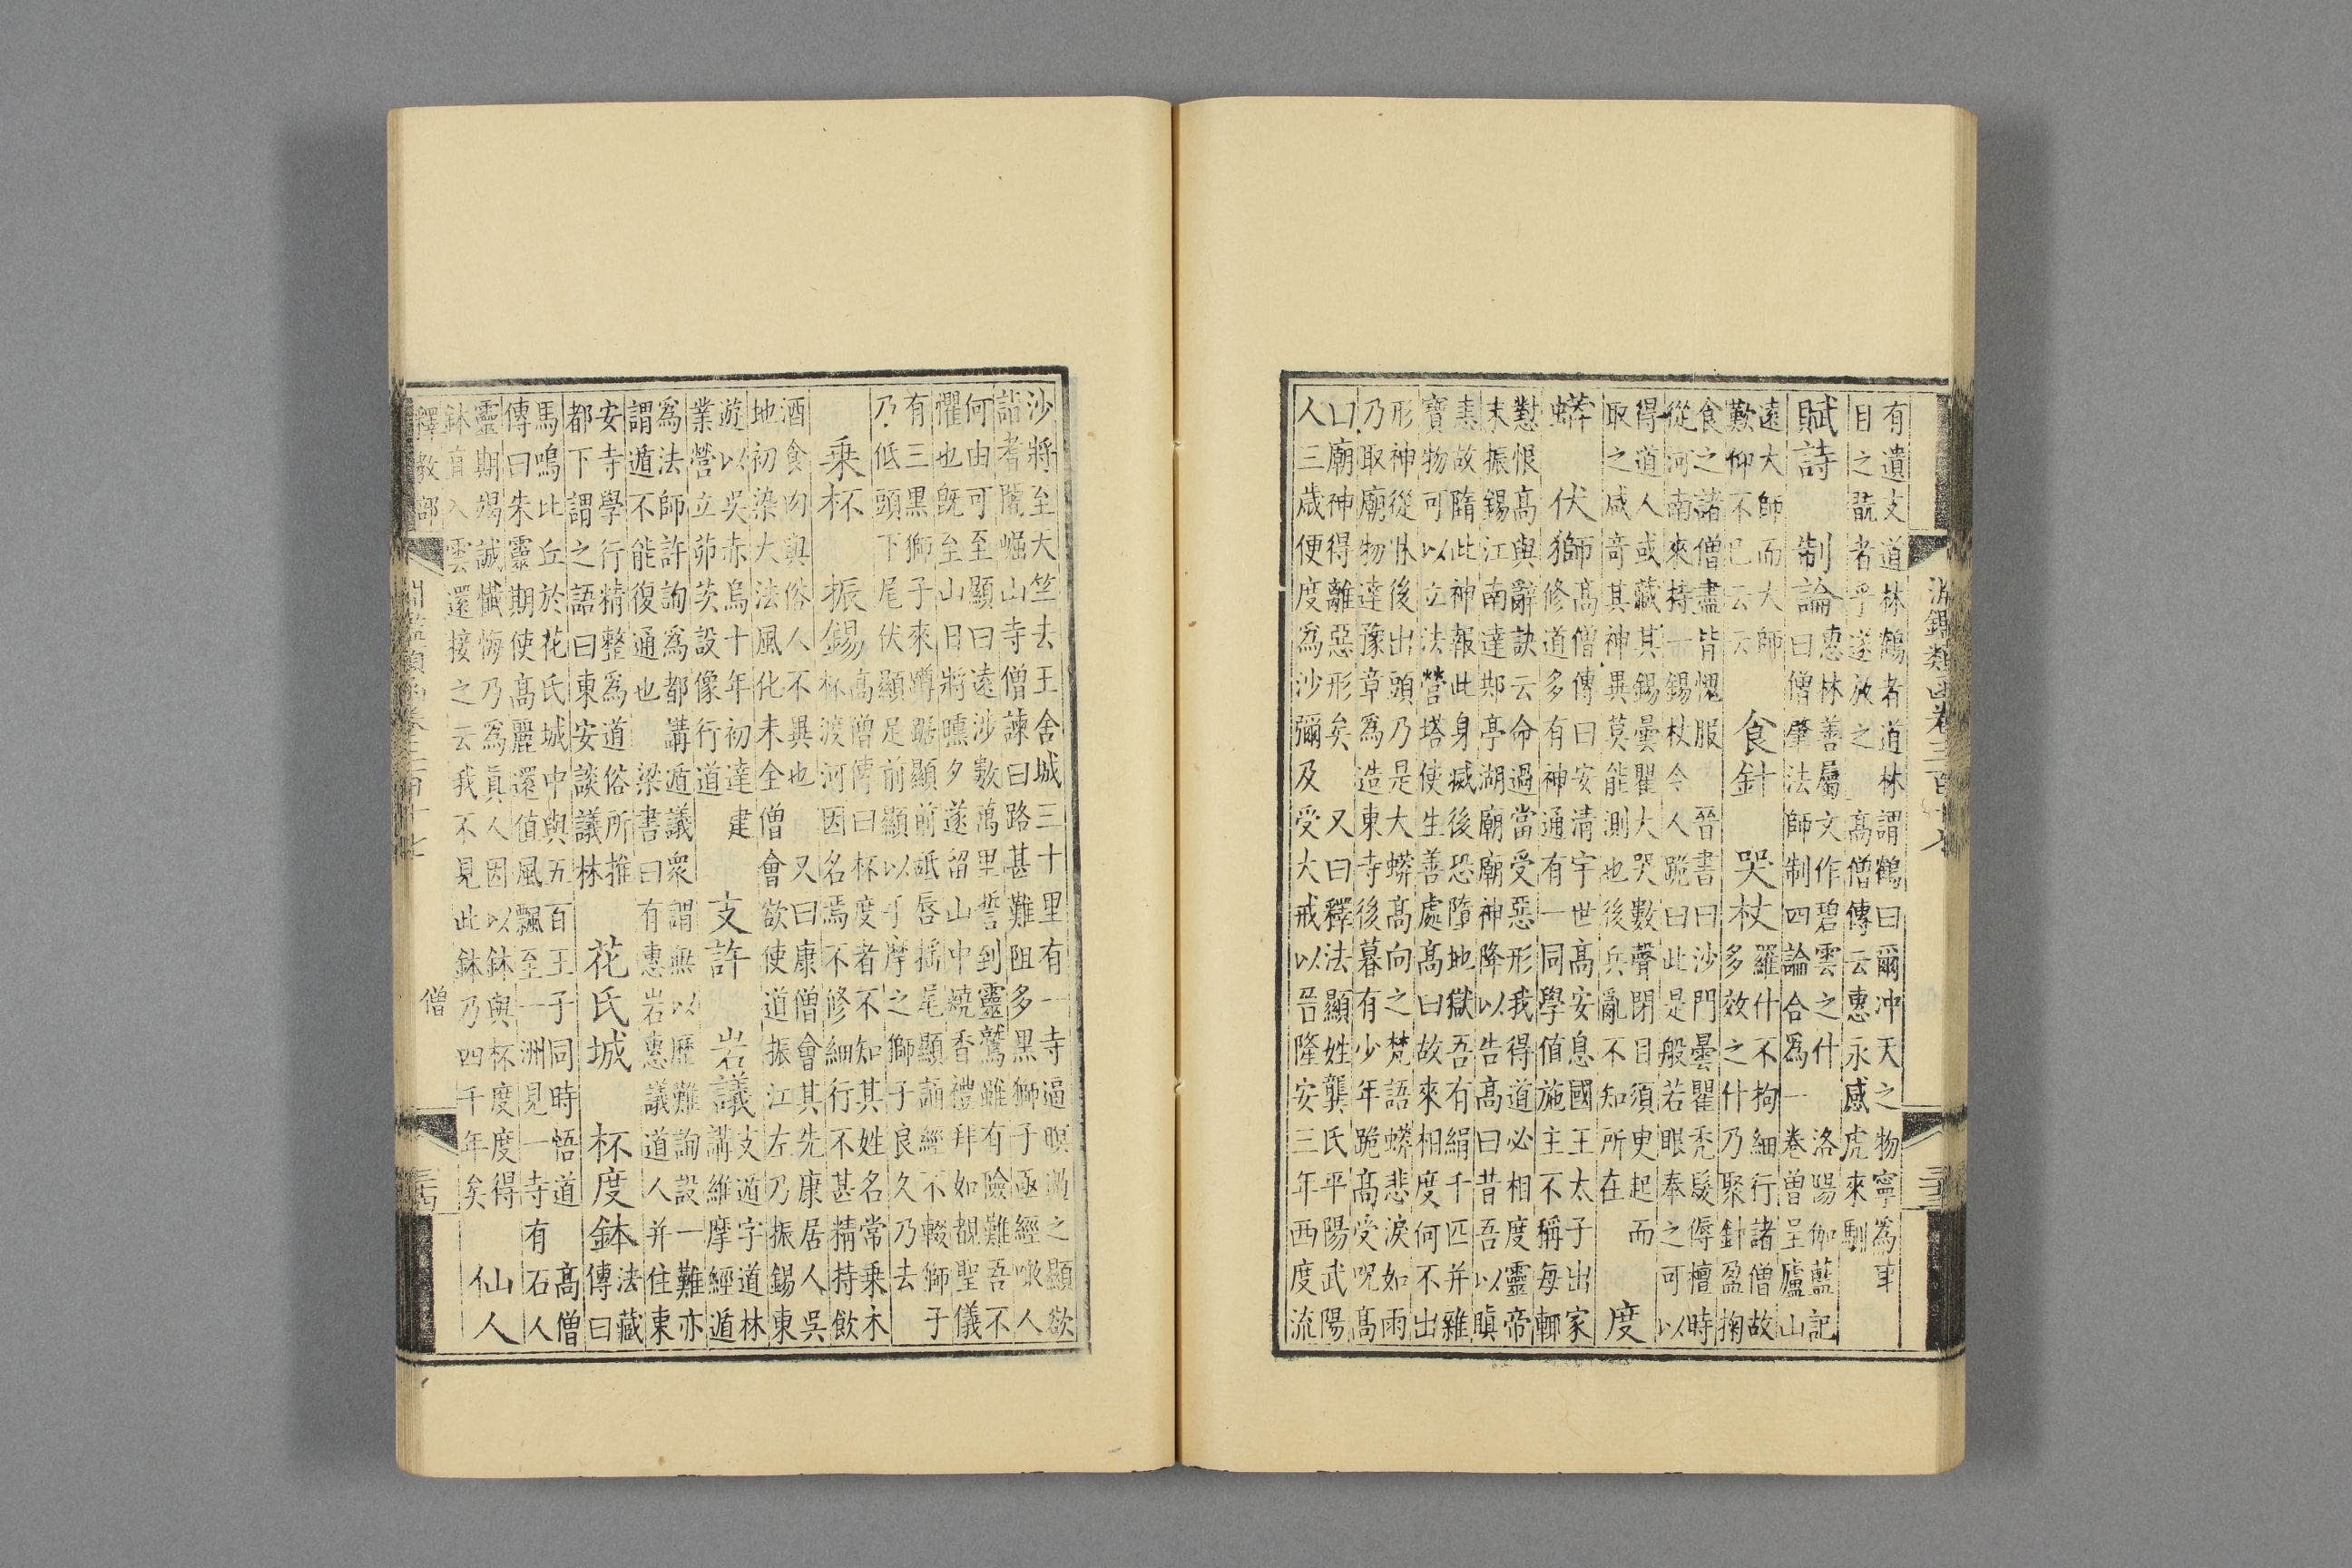 淵鑑類函卷三百十七
有遺支道林鶴者道林謂鶴曰爾冲天之物寧爲耳
目之翫者乎遂放之 高僧傳云惠永感虎來馴
賦詩 制論
惠林善屬文作碧雲之什 洛陽伽藍記
曰僧肇法師制四論合爲一卷曽呈廬山
遠大師而大師
歎仰不已云云
食針 哭杖
羅什不拘細行諸僧故
多效之什乃聚針盈掬
食之諸僧盡皆愧服 晉書曰沙門曇瞿禿髮傉檀時
從河南來持一錫杖令人跪曰此是般若眼奉之可以
得道人或藏其錫曇瞿大哭數聲閉目須臾起而
取之咸奇其神異莫能測也後兵亂不知所在
度
蟒 伏獅
高僧傳曰安清字世高安息國王太子出家
修道多有神通有一同學值施主不稱每輒
懟恨高與辭訣云命過當受惡形我得道必相度靈帝
末振錫江南達䢼亭湖廟廟神降以告高曰昔吾以瞋
恚故隋此神報此身滅後恐墮地獄吾有絹千匹并雜
寶物可以立法營塔使生善處高曰故來相度何不出
形神從牀後出頭乃是大蟒高向之梵語蟒悲淚如雨
乃取廟物達豫章爲造東寺後暮有少年跪高受呪高
曰廟神得離惡形矣 又曰釋法顯姓龔氏平陽武陽
人三歲便度爲沙彌及受大戒以晉隆安三年西度流
沙將至大竺去王舍城三十里有一寺逼暝過之顯欲
詣耆闍崛山寺僧諫曰路甚難阻多黑獅子亟經噉人
何由可至顯曰遠涉數萬里誓到靈鷲雖有險難吾不
懼也既至山日將曛夕遂留山中燒香禮拜如覩聖儀
有三黑獅子來蹲踞顯前舐唇搖尾顯誦經不輟獅子
乃低頭下尾伏顯足前顯以手摩之獅子良久乃去
乘杯 振錫
高僧傳曰杯度者不知其姓名常乘木
杯渡河因名焉不修細行不甚精持飲
酒食肉與俗人不異也 又曰康僧會其先康居人吳
地初染大法風化未全僧會欲使道振江左乃振錫東
遊以吳赤烏十年初達建
業營立茆茨設像行道
支許 岩議
支遁字道林
講維摩經遁
爲法師許詢爲都講遁議衆謂無以歷難詢設一難亦
謂遁不能復通也 梁書曰有惠岩惠議道人并住東
安寺學行精整爲道俗所推
都下謂之語曰東安談議林
花氏城 杯度鉢
法藏
傳曰
馬鳴比丘於花氏城中與五百王子同時悟道 高僧
傳曰朱靈期使高麗還值風飄至一洲見一寺有石人
靈期竭誠懺悔乃爲眞人因以鉢與杯度度得
鉢直入雲還接之云我不見此鉢乃四千年矣
仙人
釋教部 僧